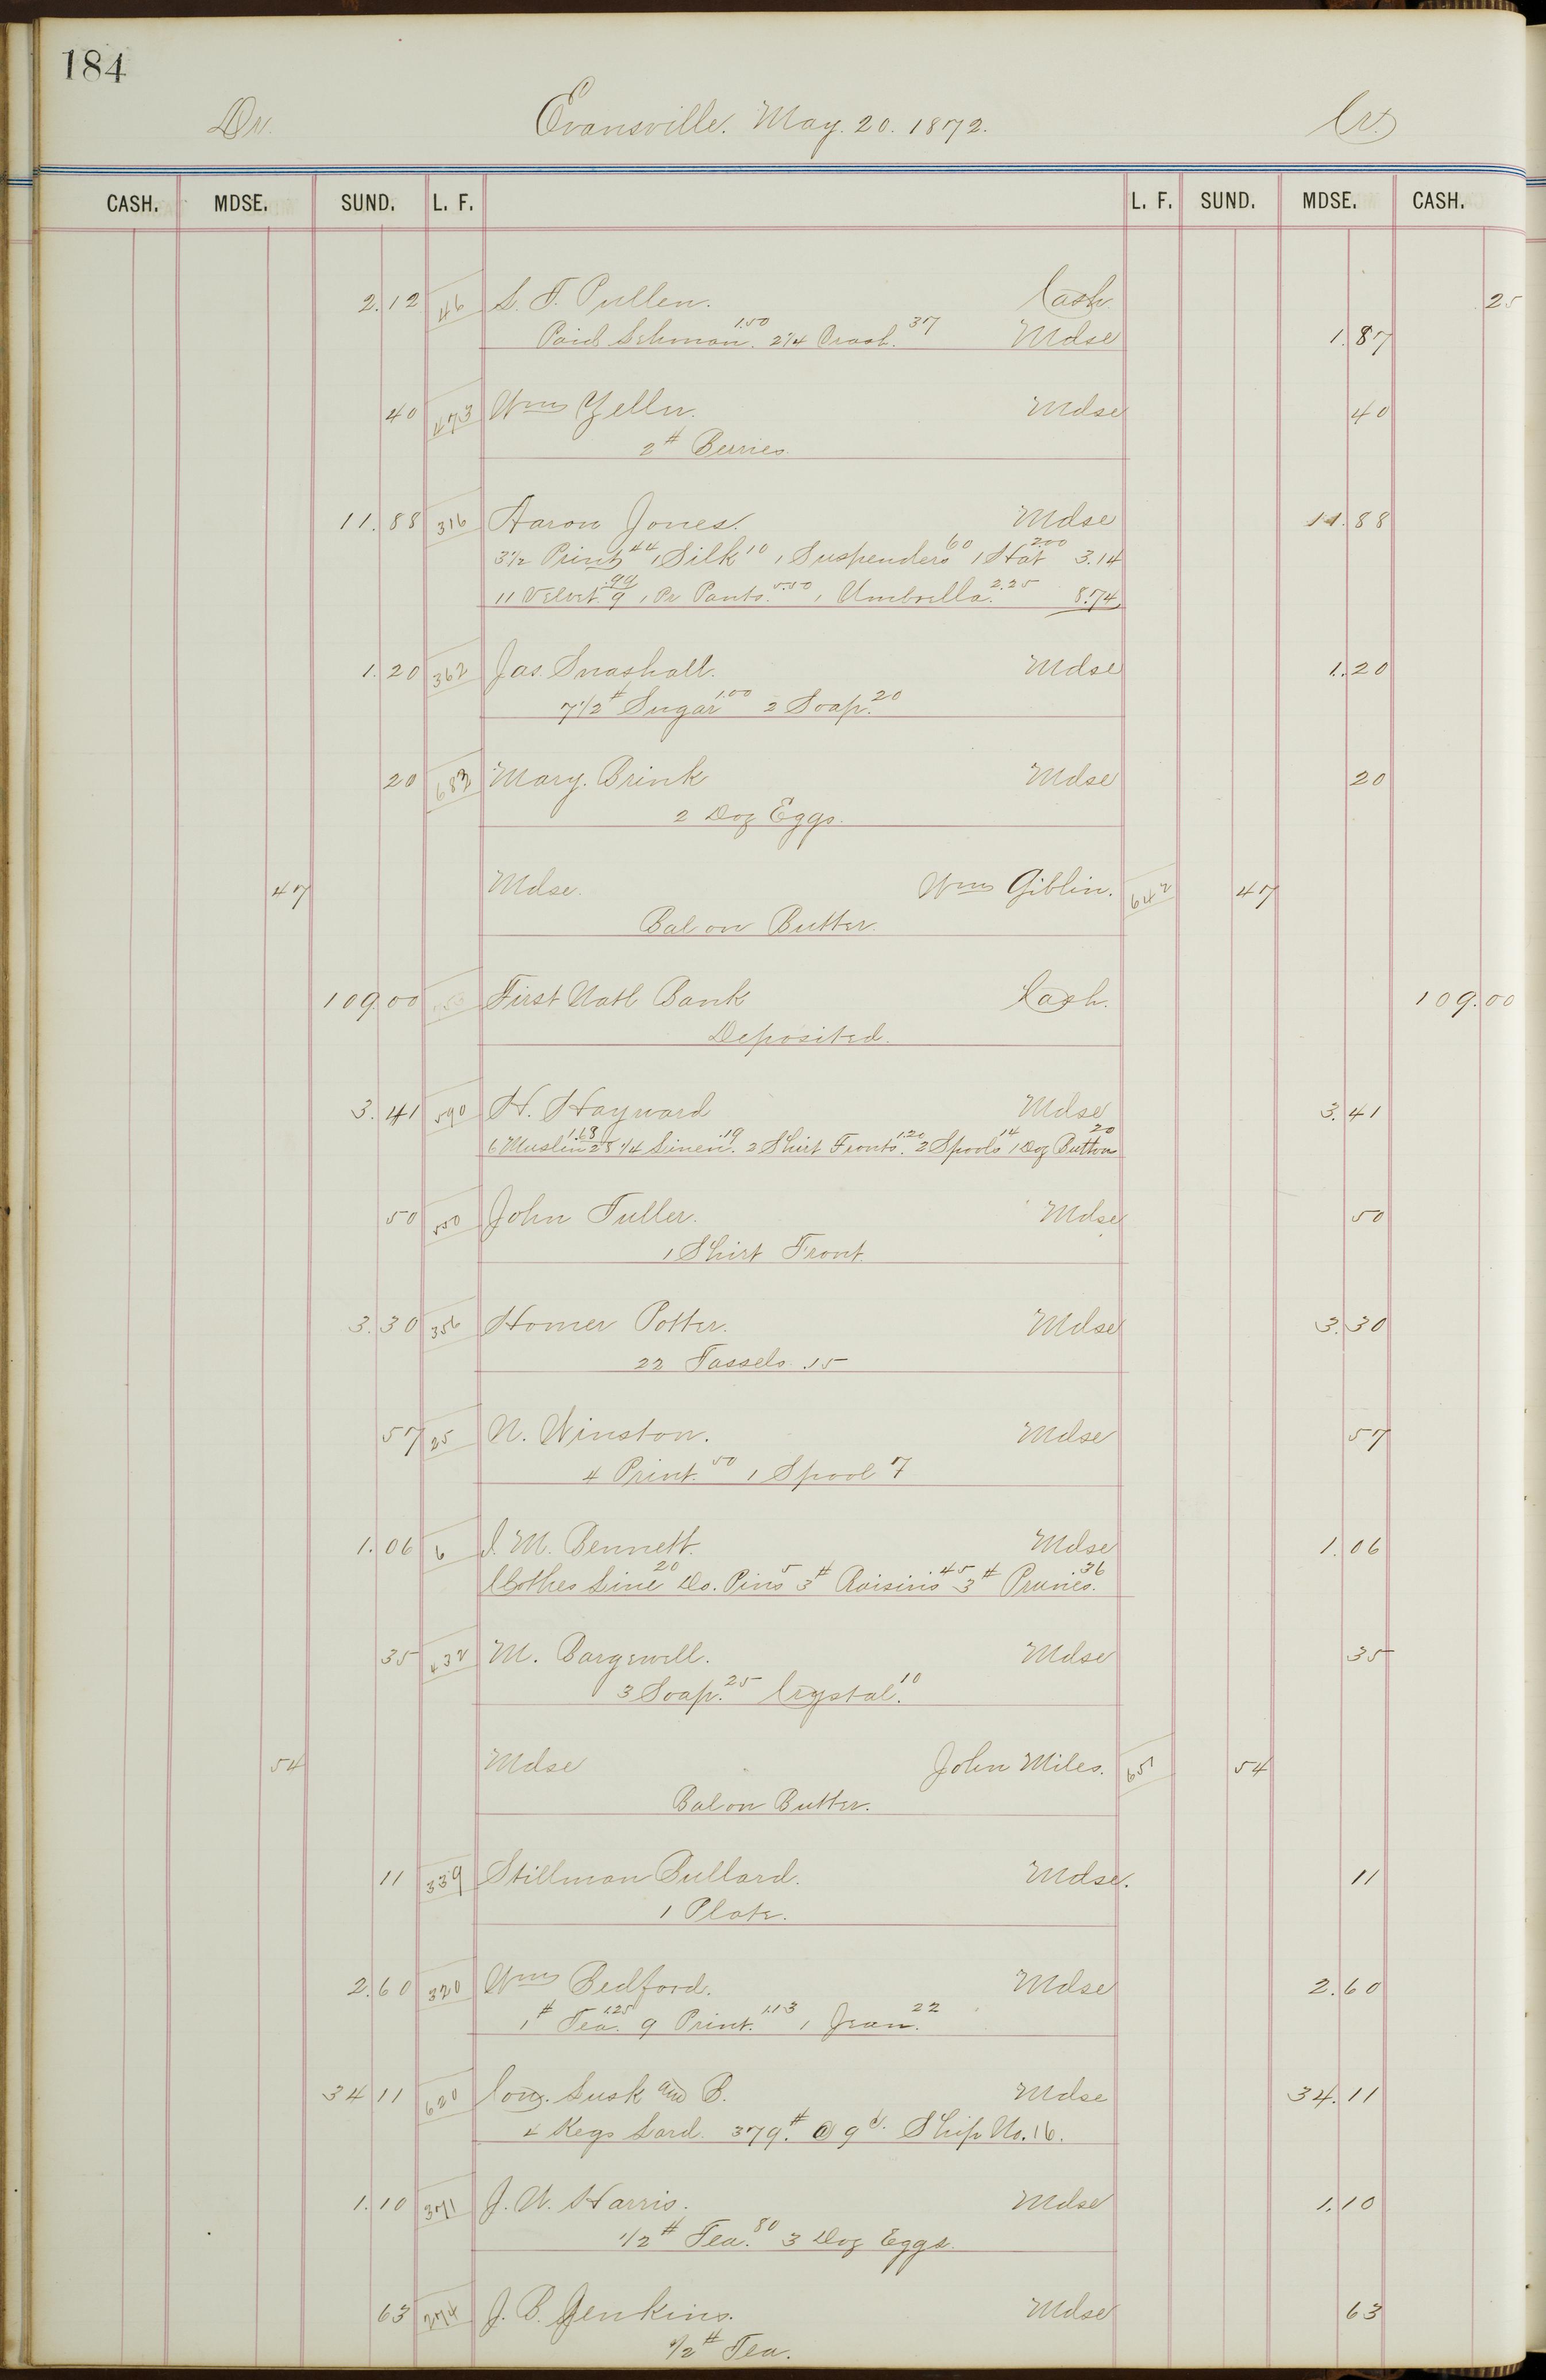 184
Dr. Evansville. May. 20. 1872. Cr.
CASH. MDSE. SUND. L. F. L. F. SUND. MDSE. CASH.
2.12 46 S. T. Pullen. Cash 25
Paid 1.50 2 1/4 Crash. 37 Mdse 1.87
40 473 Wm Zeller. Mdse 40
2# Berries
11.88 316 Aaron Jones. Mdse 11.88
3 1/2 Print 44 1 Silk 10 1 Suspenders 60 1 Hat 2.00 3.14
11 Velvet. 9 .99 1 Pr Pants. 5.50 1 Umbrella. 2.25 8.74
1.20 362 Jas. Snashall. Mdse 1.20
7 1/2# Sugar 1.00 2 Soap. 20
20 682 Mary. Brink Mdse 20
2 Doz Eggs.
47 Mdse. Wm Giblin. 642 47
Bal on Butter.
109.00 First Natl Bank Cash. 109.00
Deposited.
3.41 590 H. Hayward Mdse 3.41
6 Muslin 28 1.68 1/4 Linen. .19 2 Shirt Fronts. 1.20 2 Spools 14 1 Doz Button 20
50 550 John Fuller. Mdse 50
1 Shirt Front.
3.30 356 Homer Potter. Mdse 3.30
22 Tassels .15
57 25 N. Winston. Mdse 57
4 Print. 50 1 Spool 7
1.06 6 I. M. Bennett. Mdse 1.06
Clothes Line 20 Do. Pins 5 3# Raisins 45 3# Prunes. 36
35 432 M. Bargewell. Mdse 35
3 Soap. 25 Crystal. 10
54 Mdse John Miles. 651 54
Bal on Butter.
11 339 Stillman Bullard. Mdse. 11
1 Plate.
2.60 320 Wm Bedford. Mdse 2.60
1# Tea. 1.25 9 Print. 1.13 1 Jean. 22
34 11 620 Cong. Lusk and B. Mdse 34.11
4 Kegs Lard. 379.# @ 9 c. Ship No. 16.
1.10 371 J. W. Harris. Mdse 1.10
1/2# Tea. 80 3 Doz Eggs.
63 274 J. B. Jenkins. Mdse 63
1/2# Tea.